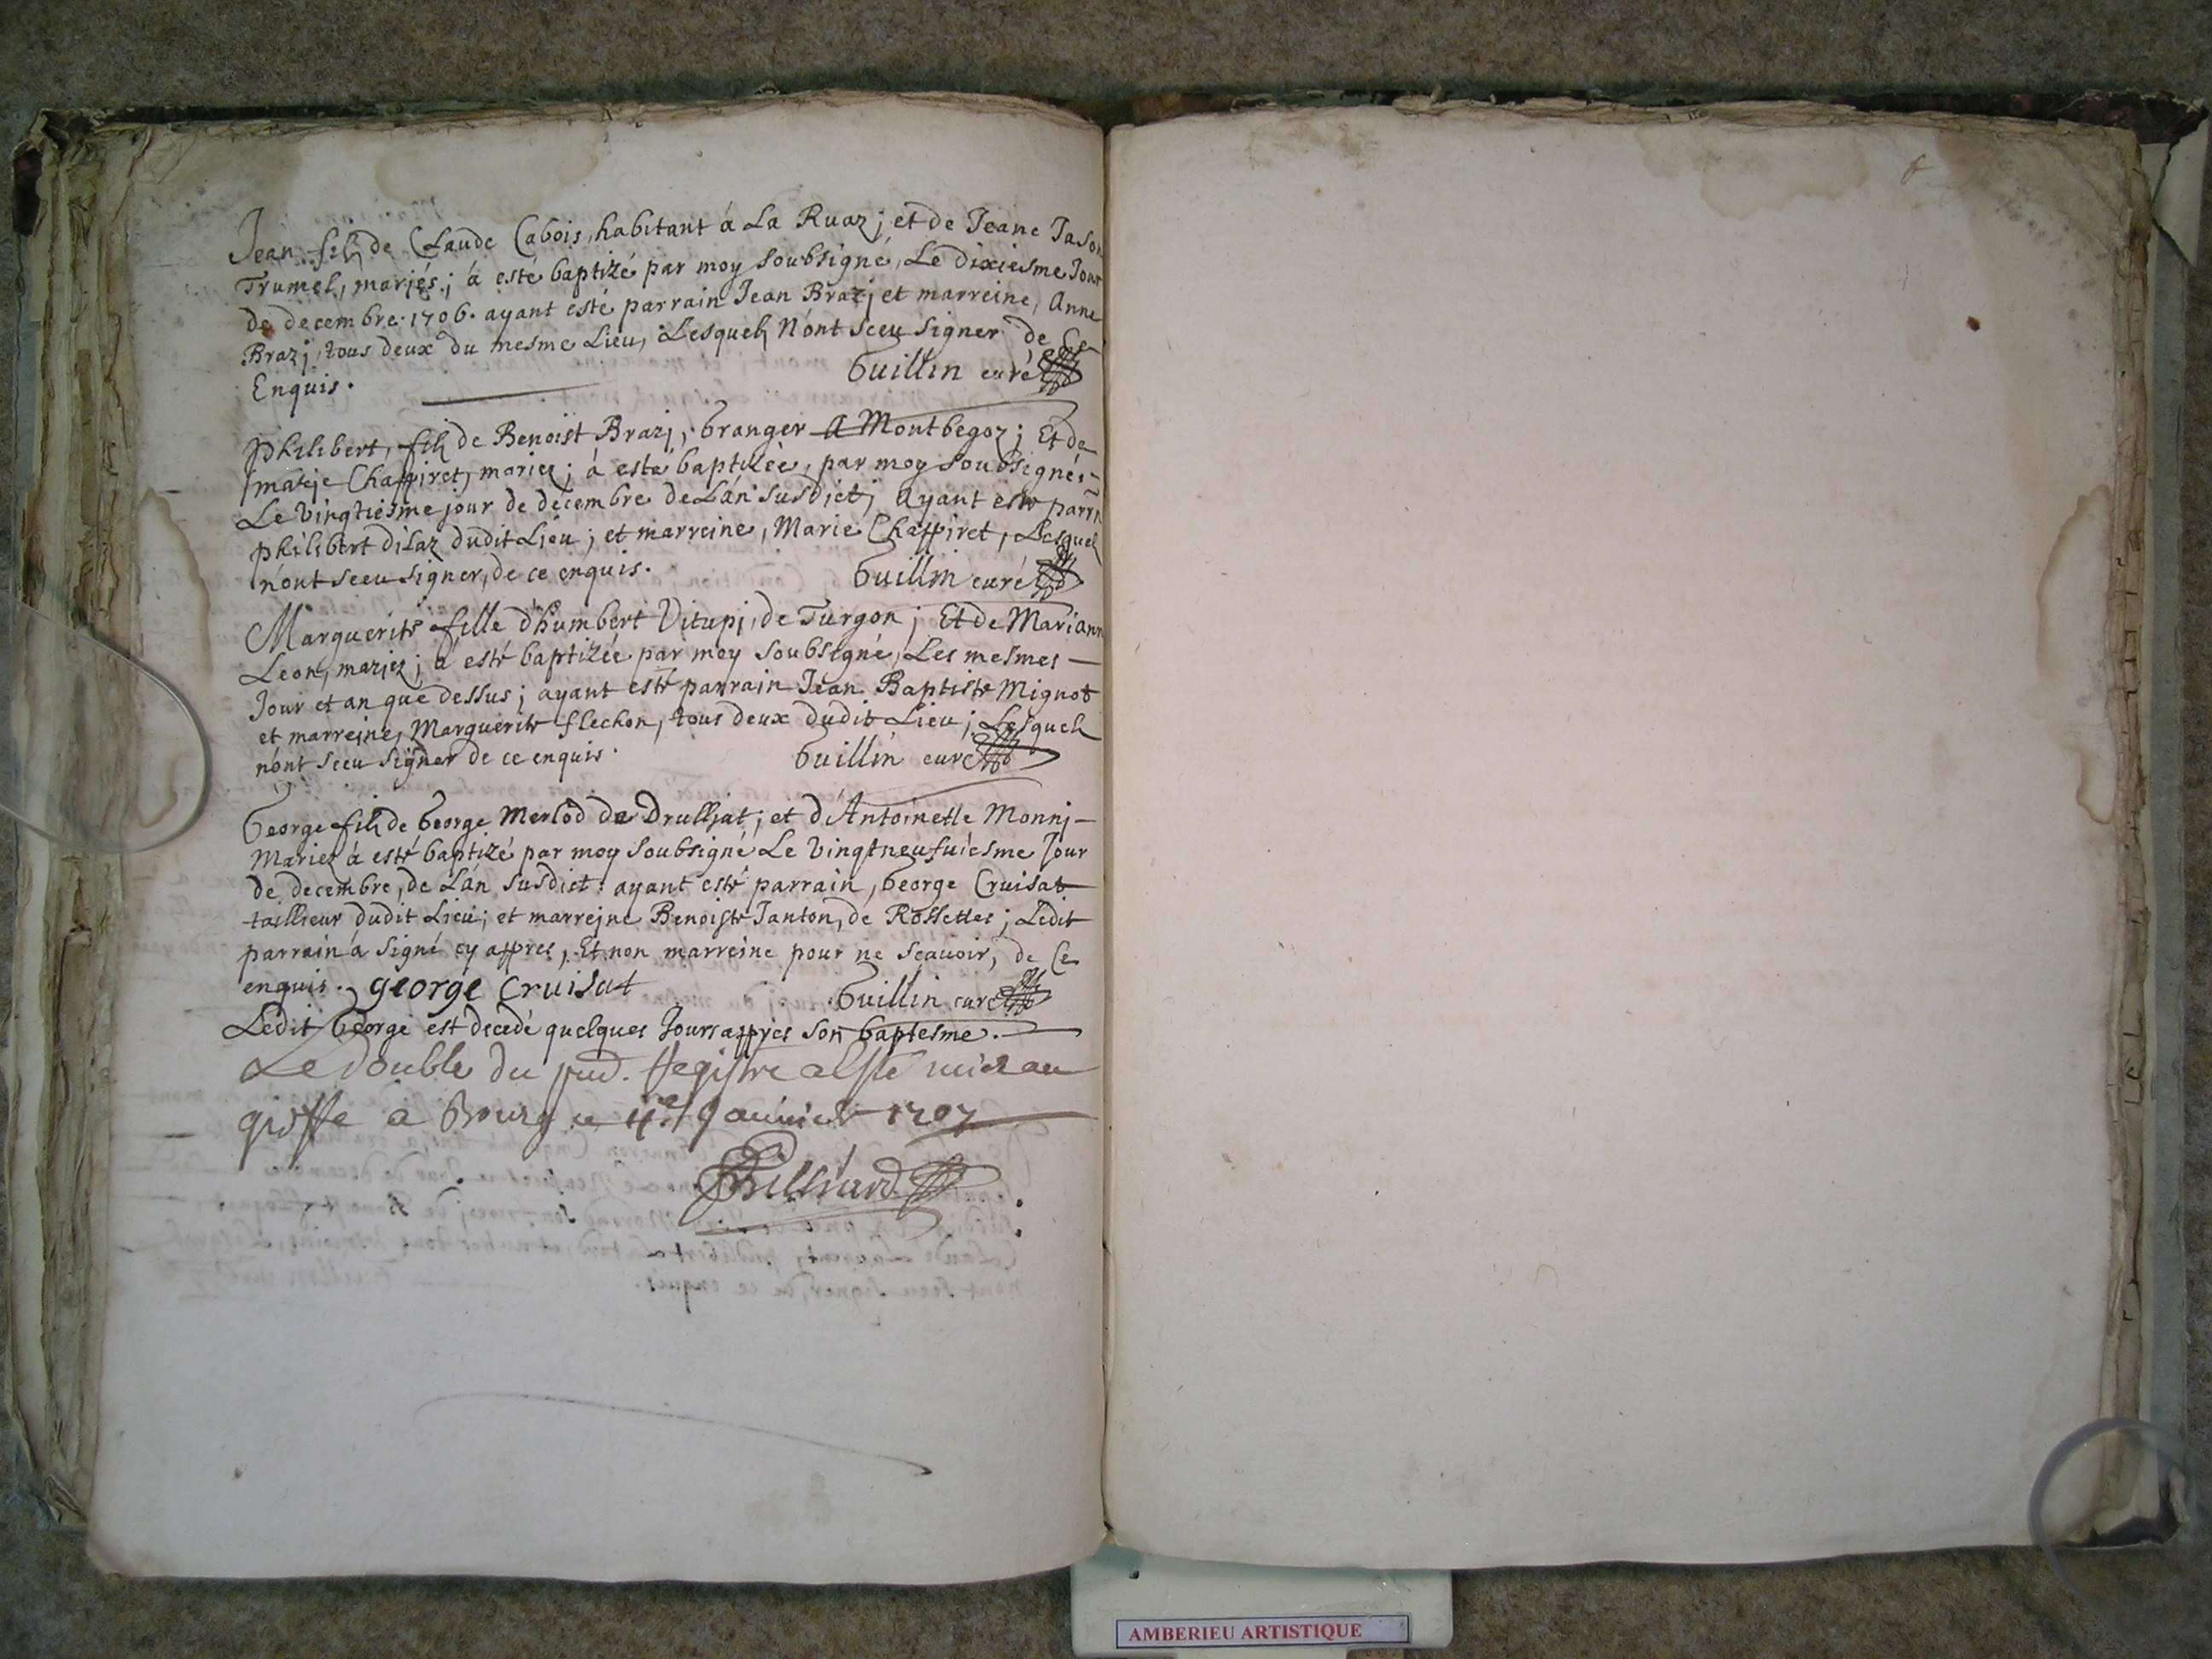 Jean fils de Claude Cabois, habitant à La Ruaz; et de Jeane Jason
Trumel, mariés; à esté baptizé par moy soubsigné, Le dixiesme Jour
de decembre 1706. ayant esté parrain Jean Brazj et marreine, Anne
Brazj, tous deux du mesme Lieu, Lesquels n'ont sceu signer de Ce
Enquis.
Guillin curé
Philibert, fils de Benoist Brazj, Granger A Montbegoz; Et de
marie Chappiret, mariez; à esté baptizée, par moy soubsigné,
Le vingtiesme jour de decembre de L'an susdict; ayant esté parrn
philibert dilaz dudit Lieu; et marreine, Marie Chappiret, Lesquels
n'ont sceu signer, de ce enquis.
Guillin curé
Marguerite fille d'humbert Vitupj, de Turgon; Et de Mariann
Leon, mariez; à esté baptizée par moy soubsigné, Les mesmes
Jour et an que dessus; ayant esté parrain Jean Baptiste Mignot
et marreine, Marguerite flechon, tous deux dudit Lieu; Lesquels
n'ont sceu signer de ce enquis.
Guillin curé
George fils de George Merlod de Drulljat; et d'Antoinette Monnj
Mariez à esté baptizé par moy soubsigné Le vingtneufuiesme Jour
de decembre, de L'an susdict: ayant esté parrain, George Cruisat
taillieur dudit Lieu; et marrejne Benoiste Janton, de Rossettes; Ledit
parrain a signé cy appres, Et non marreine pour ne scauoir, de Ce
enquis. george cruisat
Guillin curé
Ledit George est decedé quelques Jours appres son baptesme.
Le double du pnt. Registre a Esté mis au
greffe a Bourg ce 4e Januier 1707
Billiard
AMBERIEU ARTISTIQUE